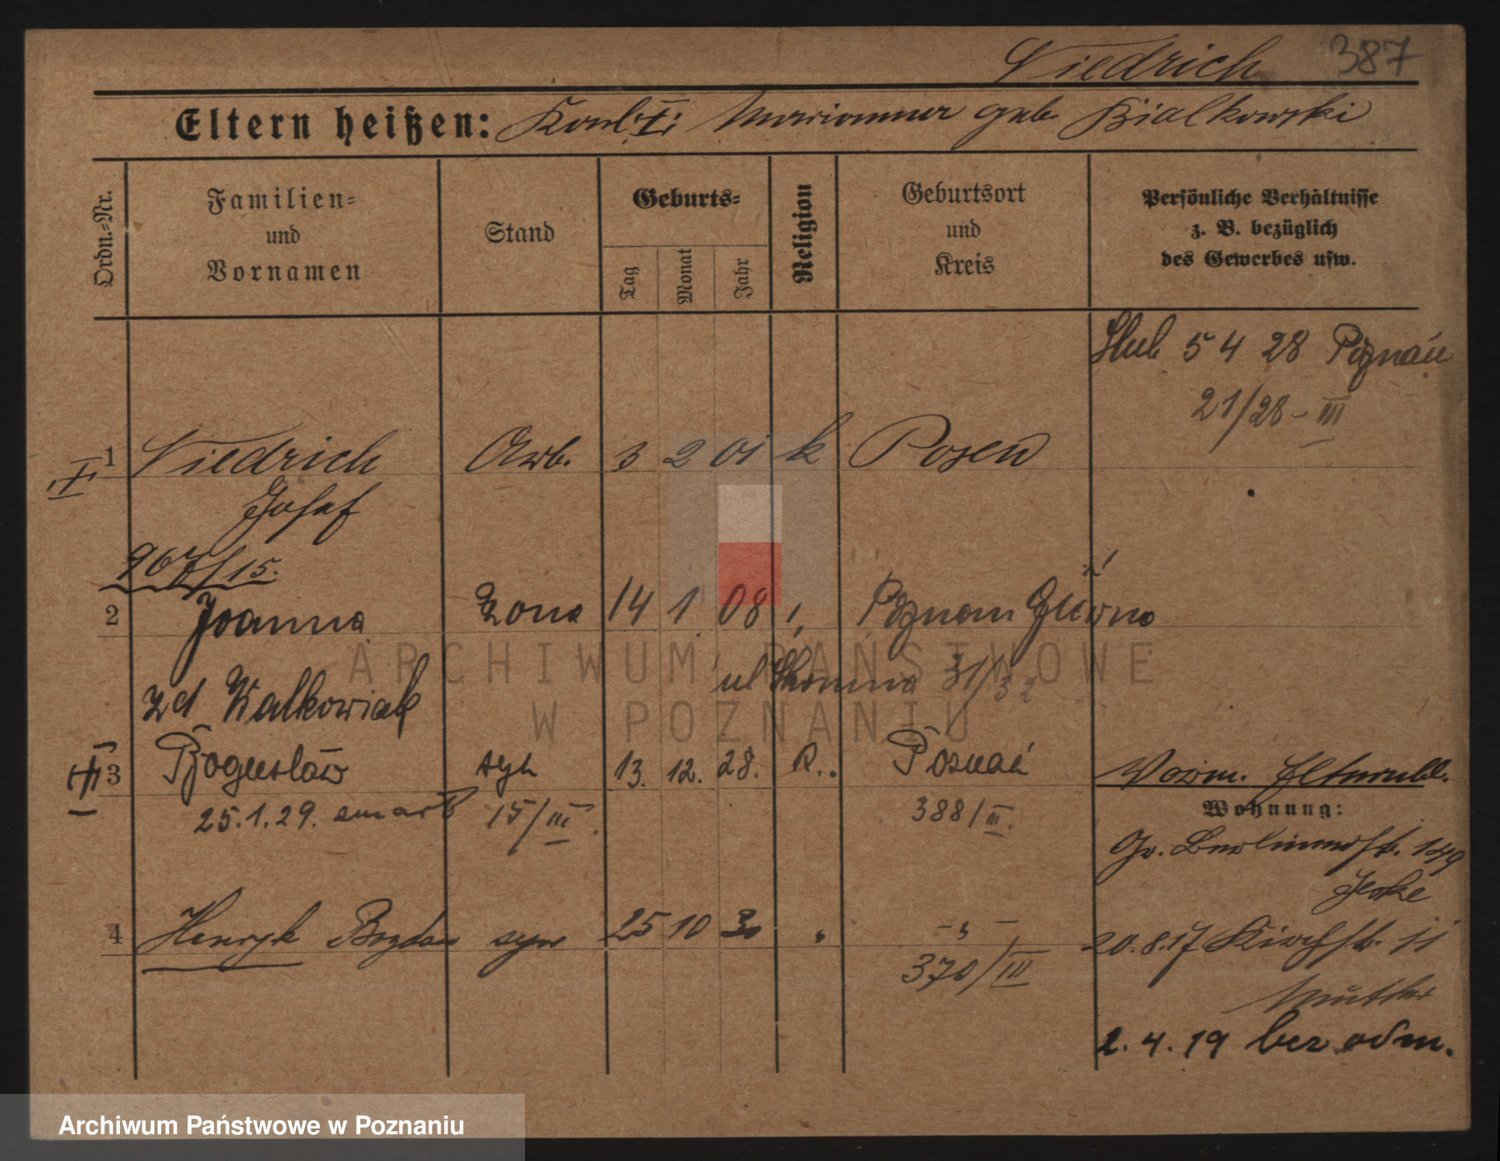 Viedrich 387
Eltern heißen: geb. Bialkowski
Ordn.-Nr.
Familien-
und
Vornamen
Stand
Geburts-
Tag
Monat
Jahr
Religion
Geburtsort
und
Kreis
Persönliche Verhältnisse
z. B. bezüglich
des Gewerbes usw.
5 4 28 Poznań
21/28-III
1 Viedrich Arb. 3 2 01 k Posen
Josef
2 Joanna żona 14 1 08 Poznań Główna
ul 31/32
zd Walkowiak
3 Bogusław syn 13. 12. 28. Poznań
25.1.29. zmarł 15/III. 388/III.
Wohnung:
Gr. Berlinerstr.
Jeske
4 Henryk Bogdan syn 25 10 30
370/III
20.8.17 Kirchstr. 11
2.4.19 bez odm.
ARCHIWUM PAŃSTWOWE
W POZNANIU
Archiwum Państwowe w Poznaniu